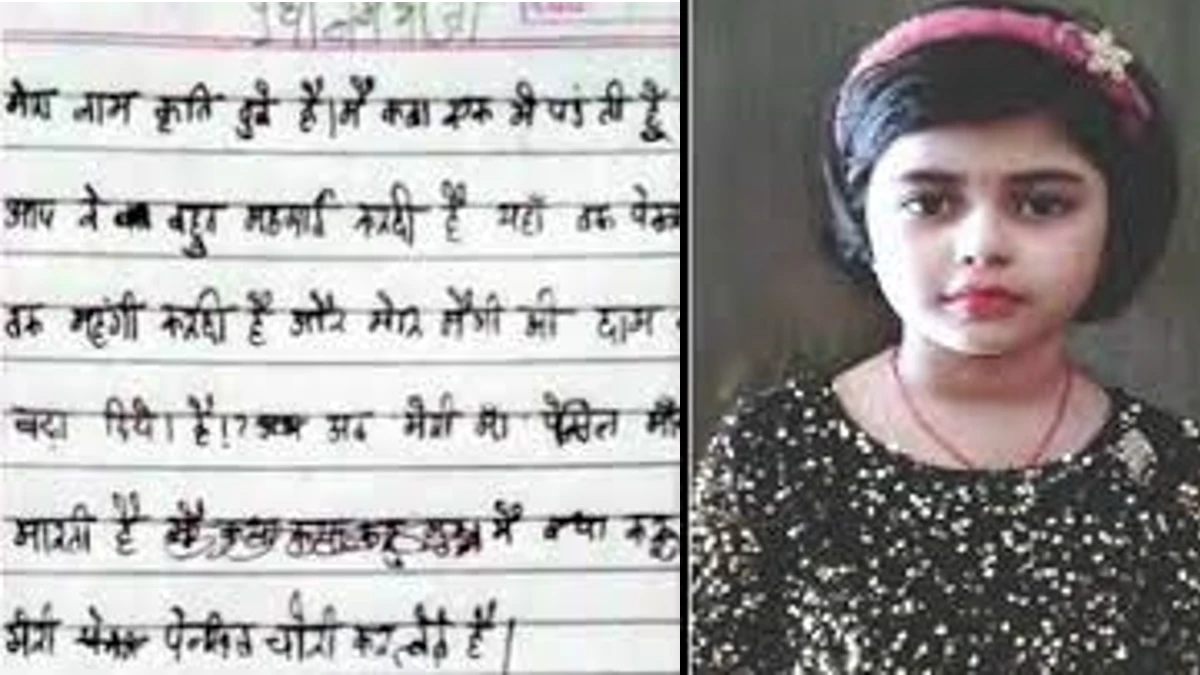 मेरा नाम कृति दुबे है। मैं कक्षा एक में पढ़ती हूँ
आप ने बहुत महगाई करदी है यहाँ तक
तक महंगी करदी है और मेरे मैगी की दाम
बड़ा दिये। है!? अब मेरी मा पेंसिल
मारती है मैं क्या करू
पेन्सिल चोरी कर लेते है।